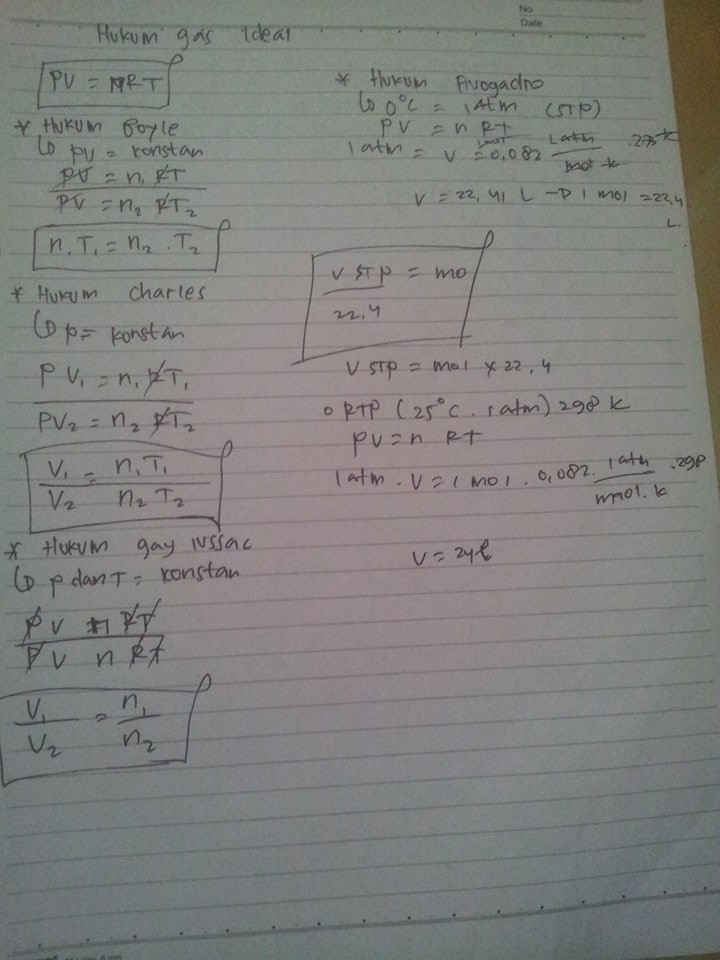 No
Date
Hukum gas ideal
PV = nRT
* Hukum Boyle
↳ PV = konstan
PV = n, RT
PV = n2 RT2
n, T1 = n2 . T2
* Hukum Charles
↳ p = konstan
P V1 = n, RT1
PV2 = n2 RT2
V1 = n1 T1
V2 n2 T2
* Hukum gay lussac
↳ p dan T = konstan
P V n RT
P V n RT
V1 = n1
V2 n2
* Hukum Avogadno
↳ 0°C = 1 Atm (STP)
PV = n RT
1 atm = V = 0,082 1 atm . 273 k
mol k
V = 22,41 L → 1 mol = 22,4
L.
V STP = mo
22,4
V STP = mol x 22,4
o RTP (25°C . 1 atm) 298 k
PV = n RT
1 atm . V = 1 mol . 0,082 . 1 atm . 298
mol . k
V = 24 l